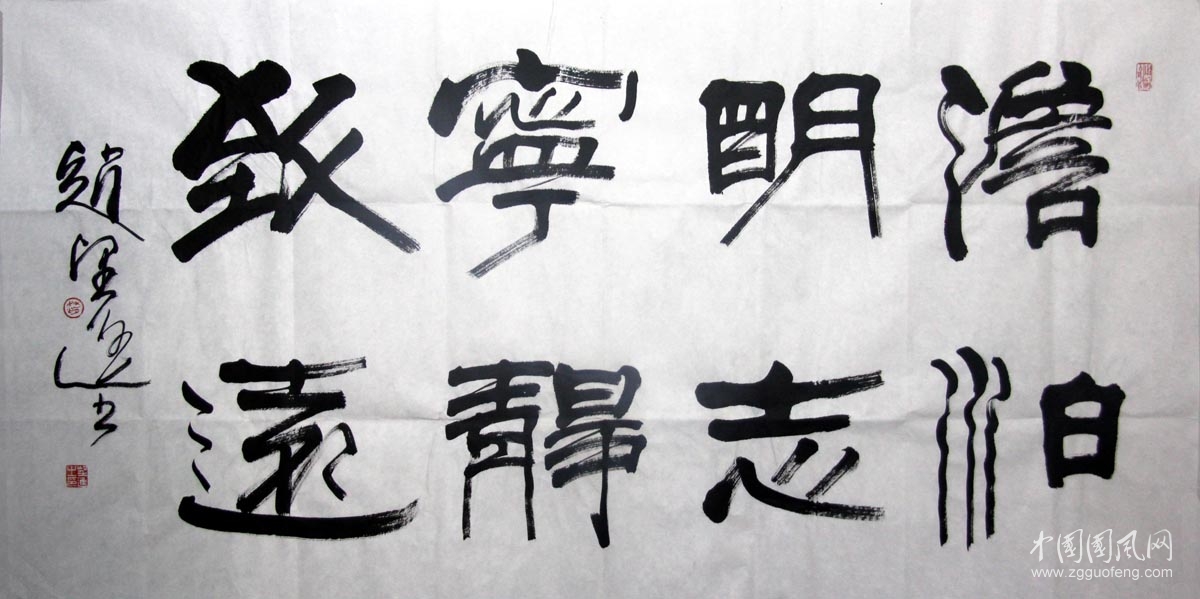 澹泊
明志
寧靜
致遠
趙望進书
中国國风网
www.zgguofeng.com